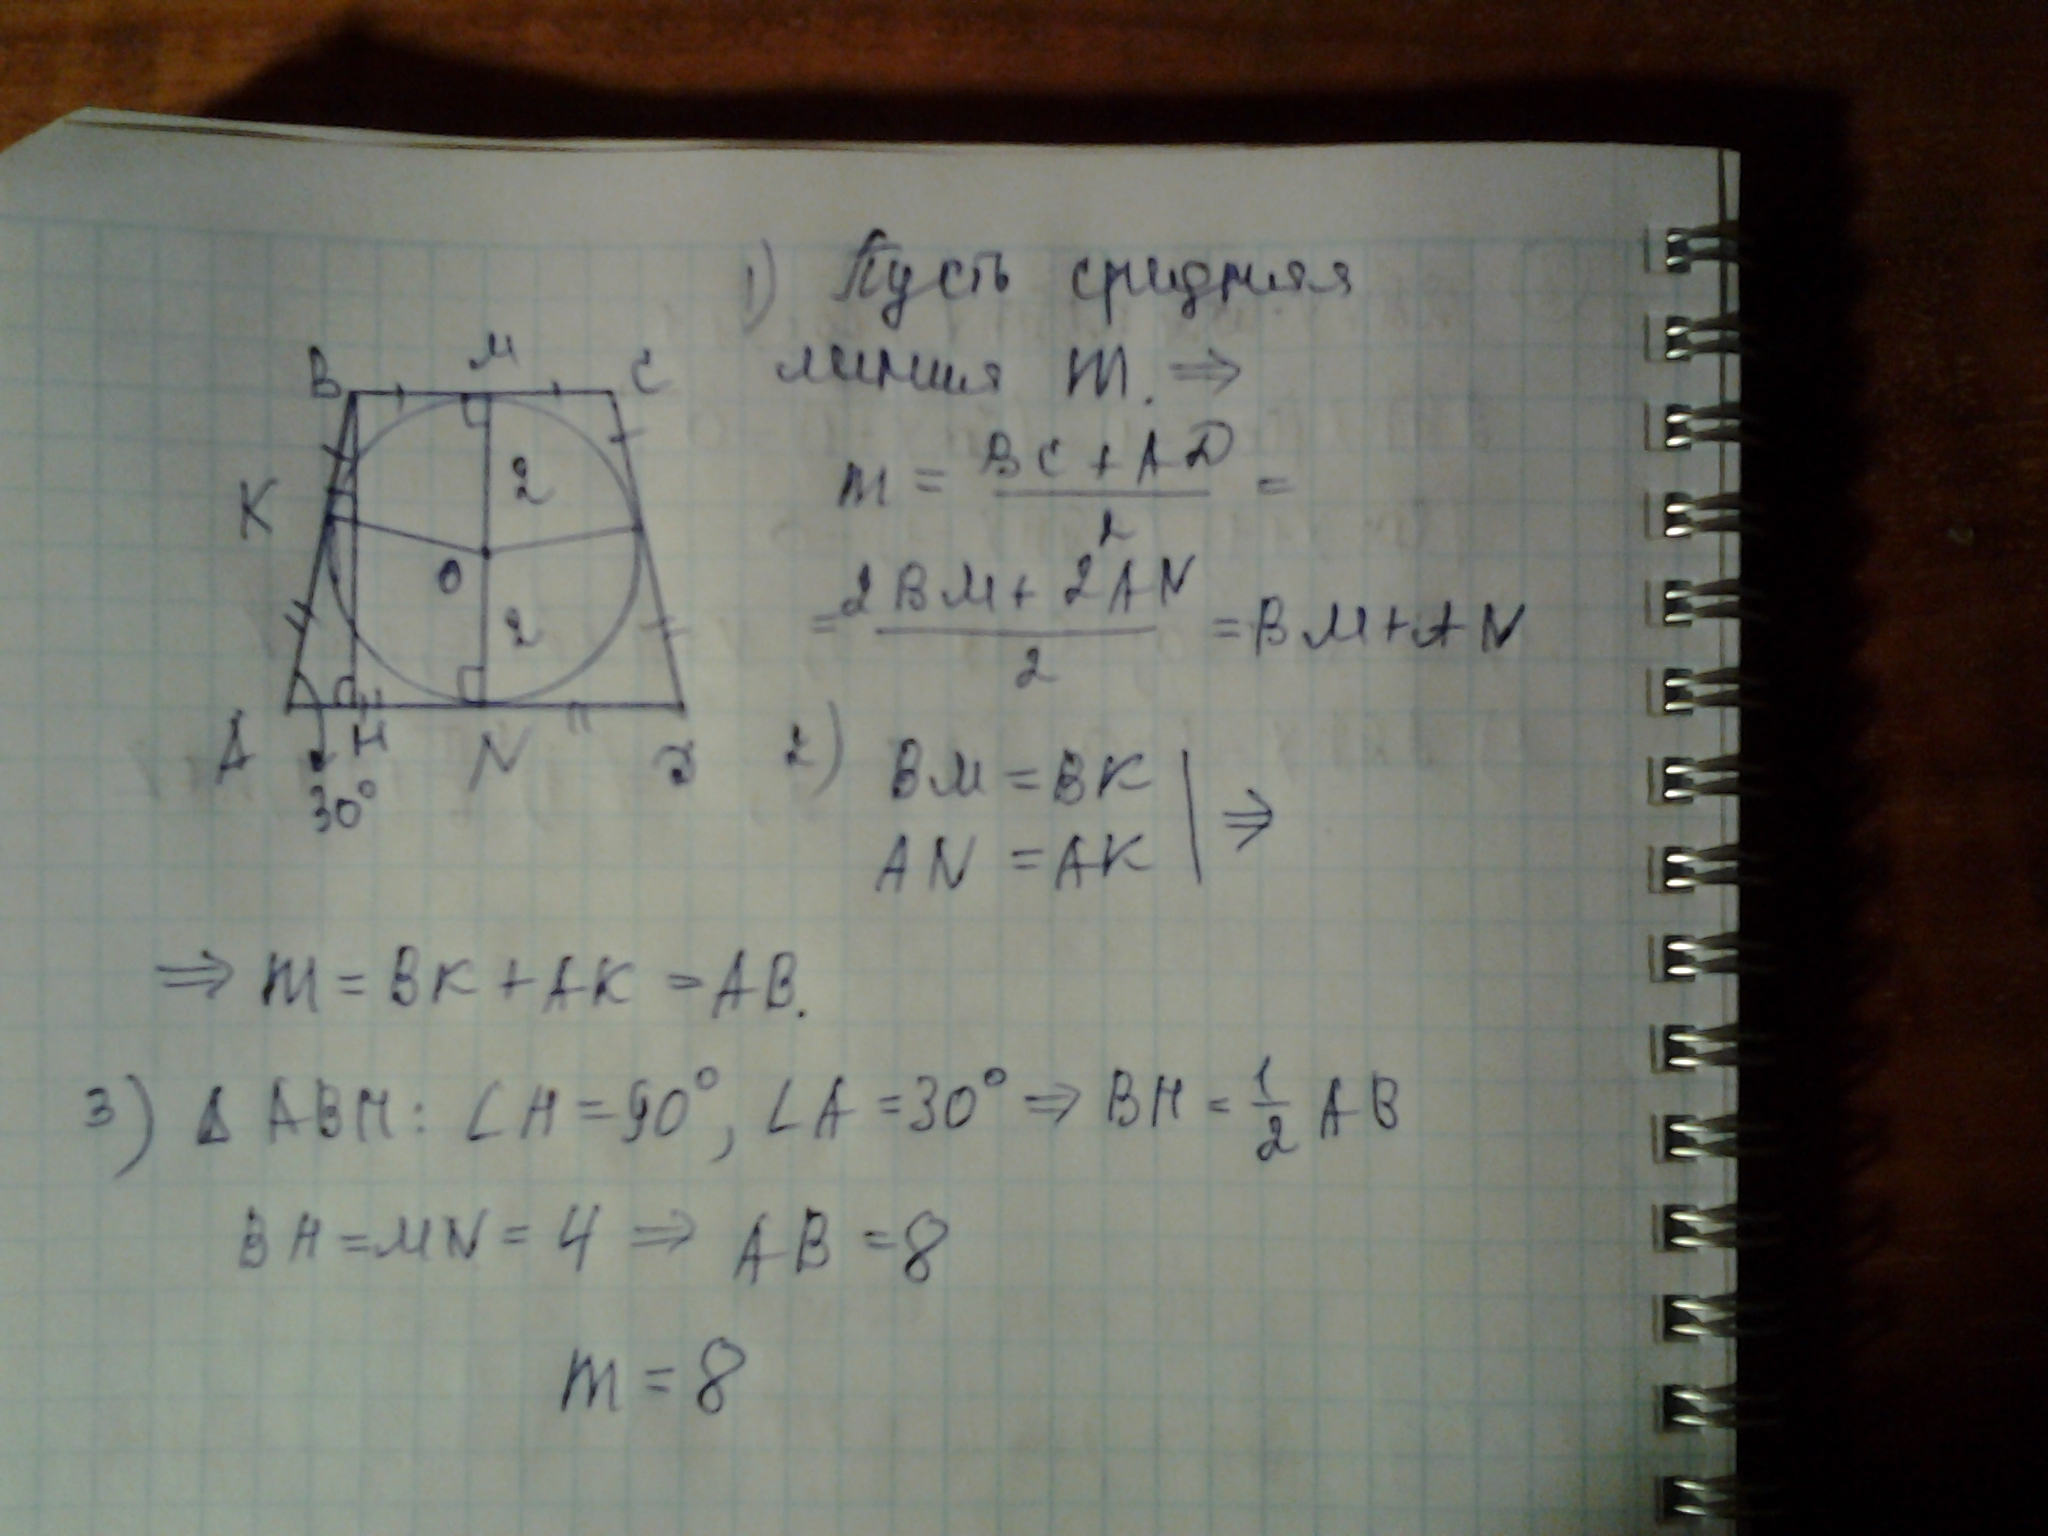 B M C
K 2
O 2
A H N D
30°
1) Пусть средняя
линия m. ⇒
m = (BC + AD)/2 =
= (2BM + 2AN)/2 = BM + AN
2) BM = BK
AN = AK | ⇒
⇒ m = BK + AK = AB.
3) Δ ABH: ∠H = 90°, ∠A = 30° ⇒ BH = 1/2 AB
BH = MN = 4 ⇒ AB = 8
m = 8